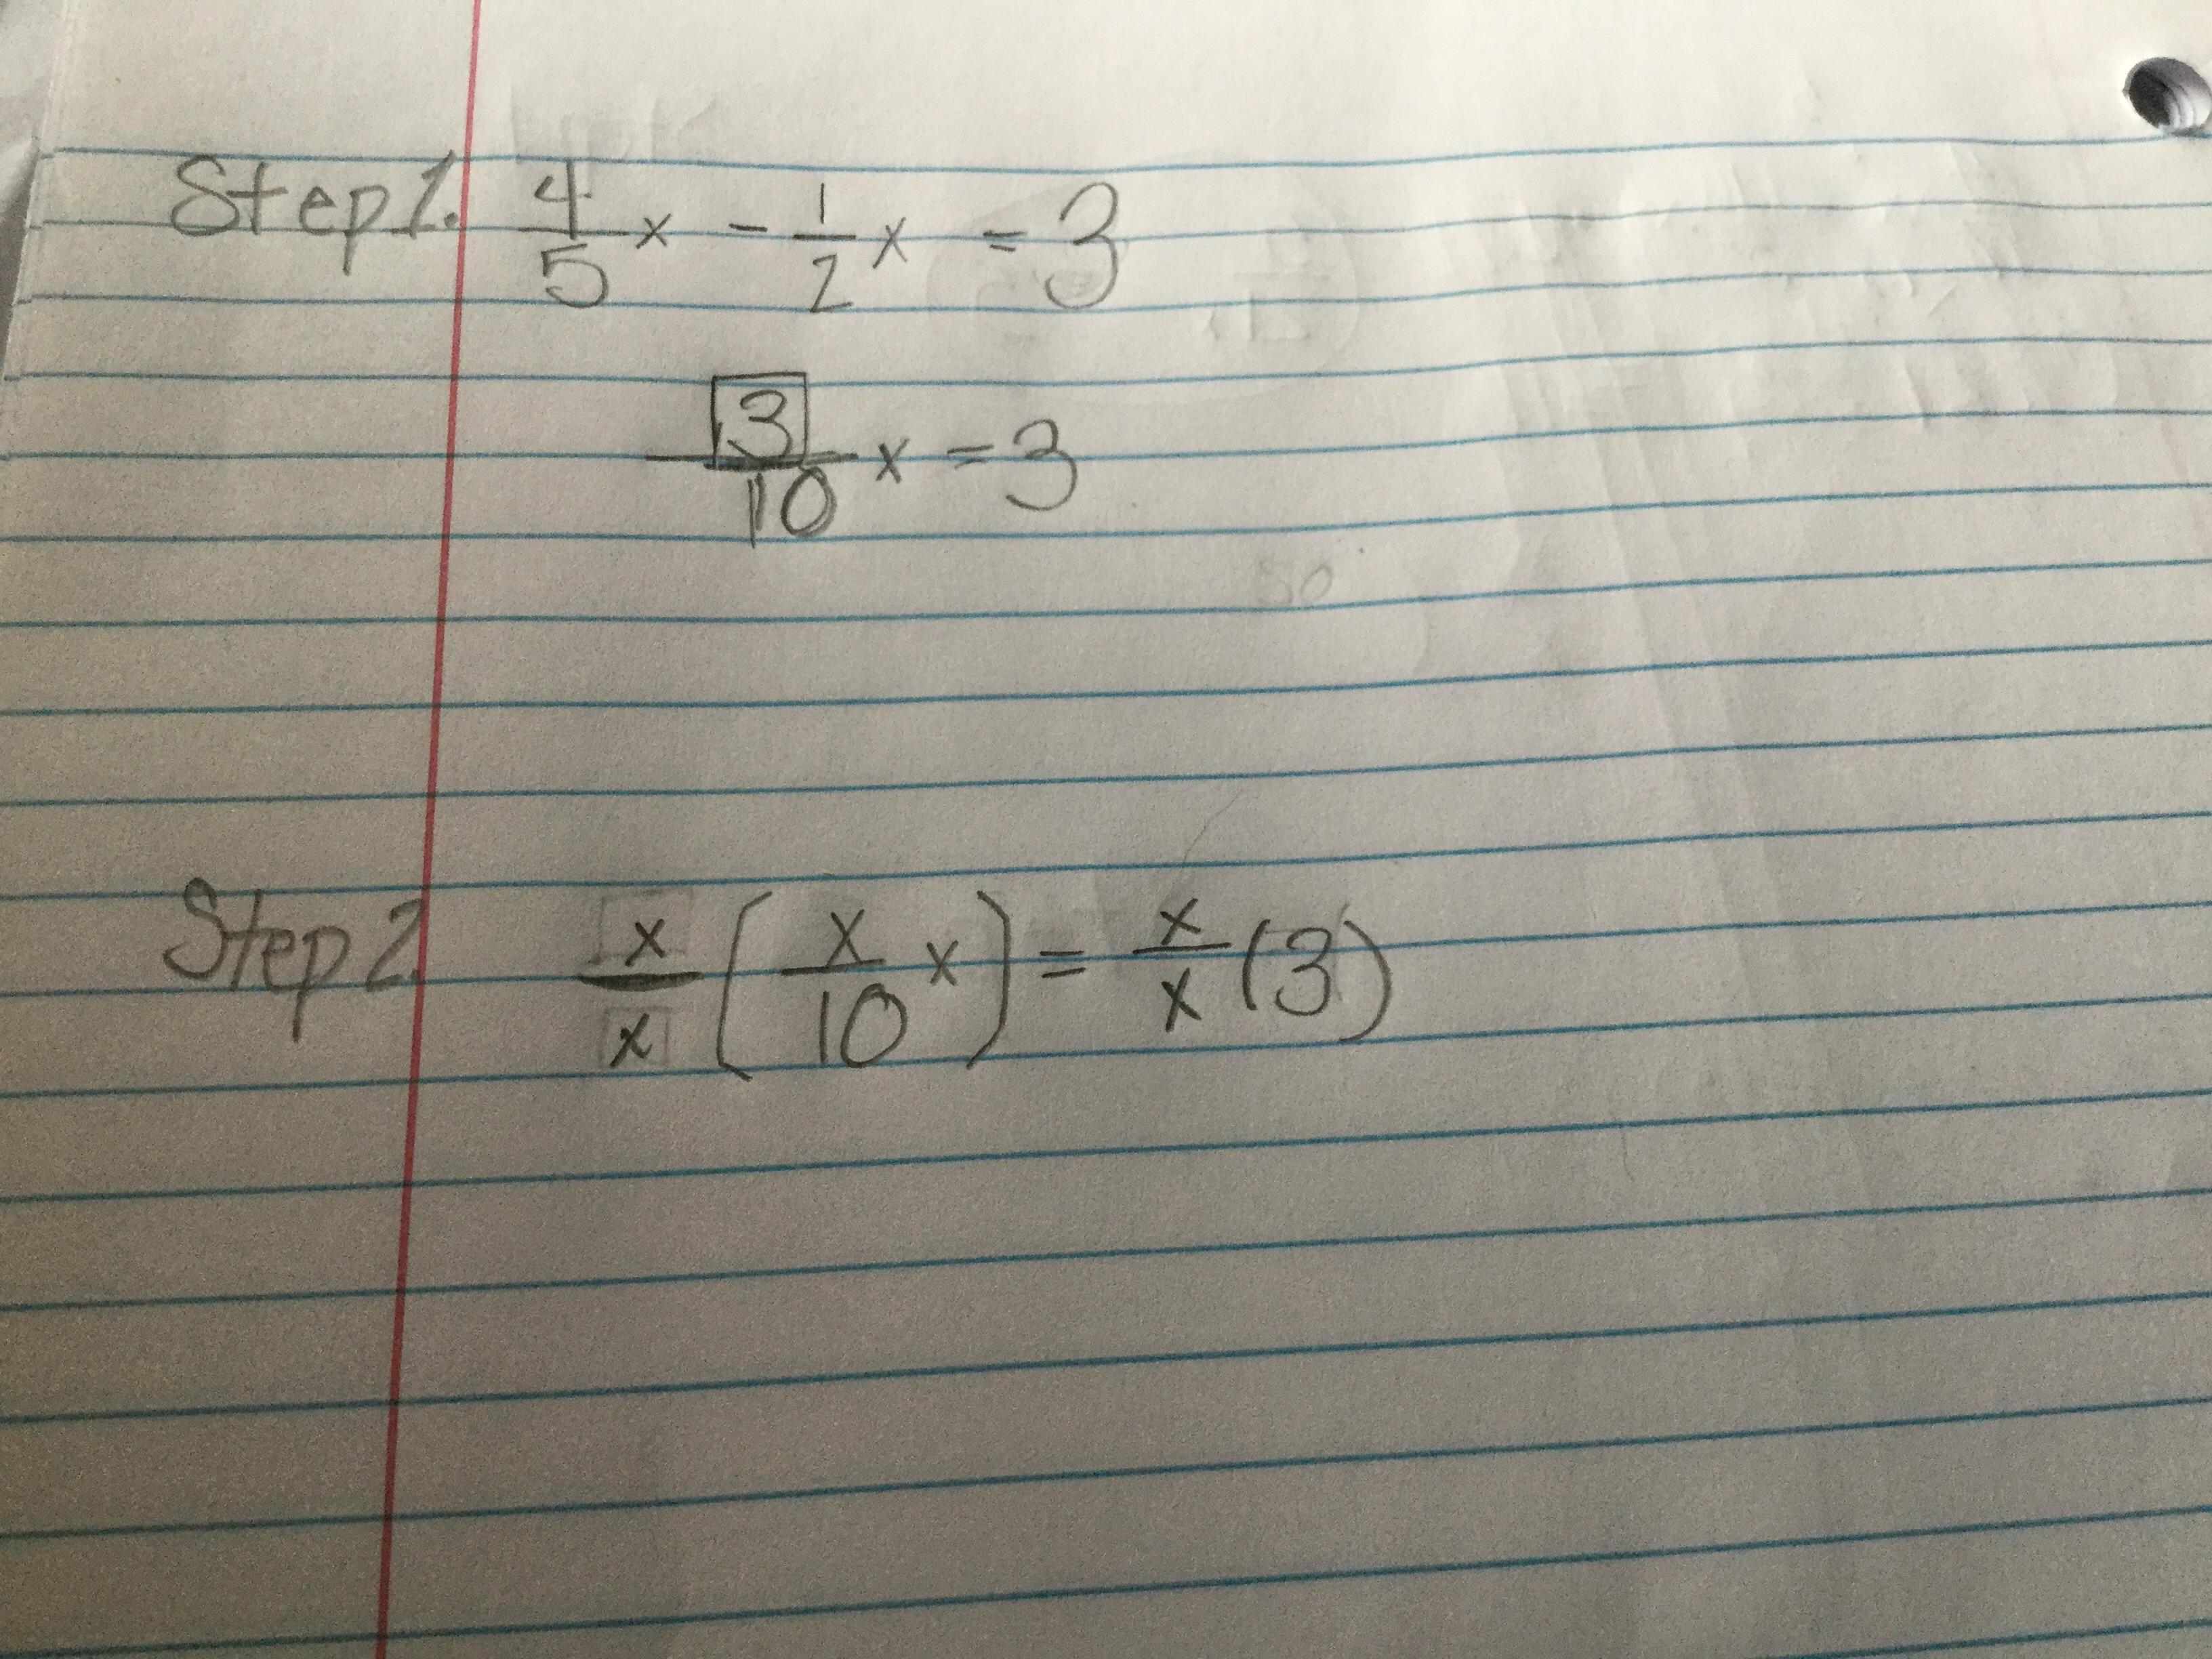 Step 1. 4/5 x - 1/2 x = 3
3/10 x = 3
Step 2. x/x (x/10 x) = x/x (3)